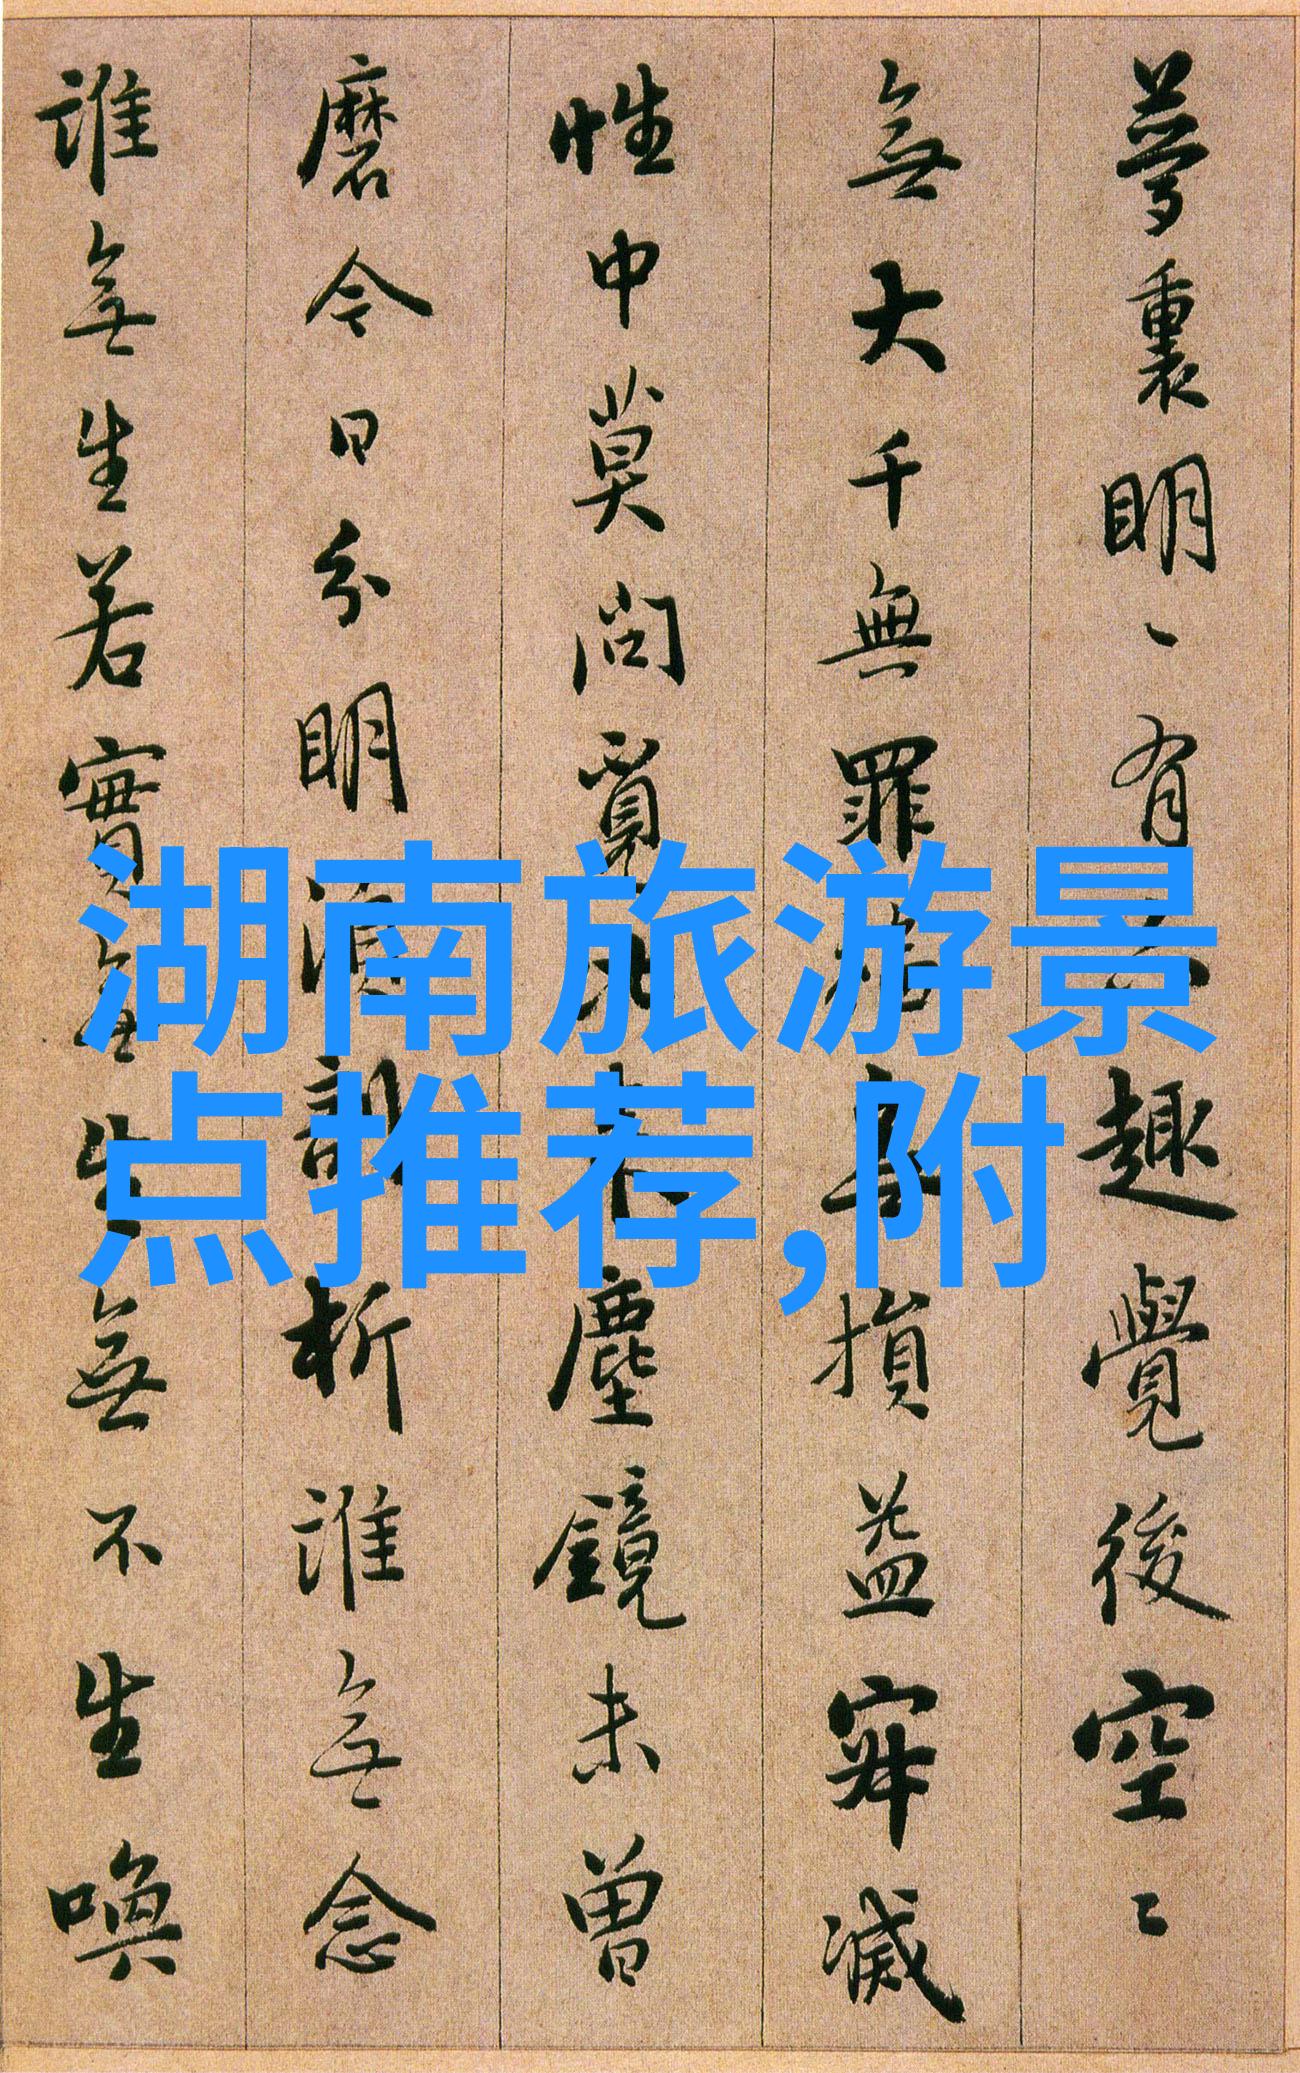 夢裏明〻有趣覺後空〻
無大千無罪無損益寂滅
性中莫問覓塵鏡未曾
磨今日分明析誰無念
誰無生若實無生無不生喚
湖南旅游景
点推荐,附